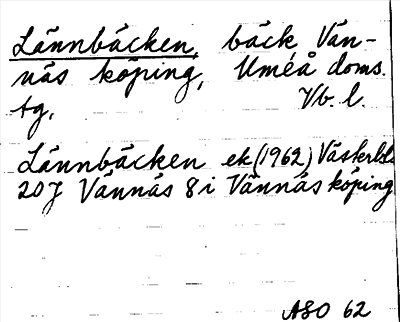 Lännbäcken, bäck, Vän-
näs köping, Umeå doms.
tg, Vb. l.
Lännbäcken ek (1962) Västerb.
20J Vännäs 8 i Vännäs köping
ASO 62